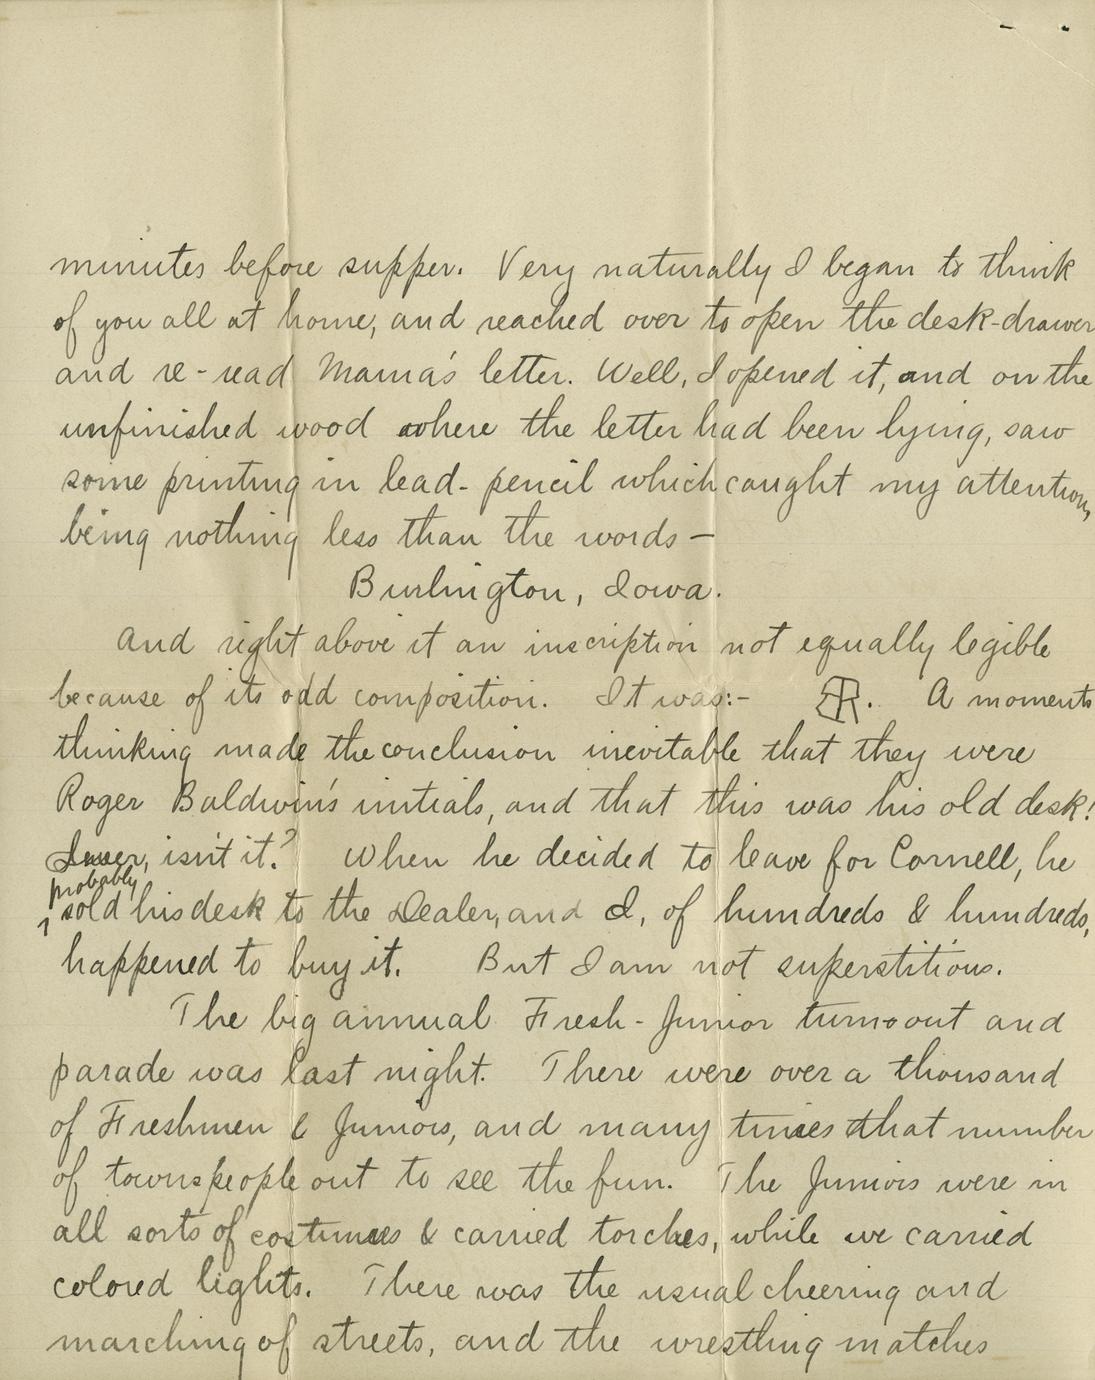 minutes before supper. Very naturally I began to think
of you all at home, and reached over to open the desk-drawer
and re-read Mama's letter. Well, I opened it, and on the
unfinished wood where the letter had been lying, saw
some printing in lead-pencil which caught my attention,
being nothing less than the words —
Burlington, Iowa.
And right above it an inscription not equally legible
because of its odd composition. It was:- . A moments
thinking made the conclusion inevitable that they were
Roger Baldwin's initials, and that this was his old desk!
isn't it? When he decided to leave for Cornell, he
probably
sold his desk to the Dealer, and I, of hundreds & hundreds,
happened to buy it. But I am not superstitious.
The big annual Fresh-Junior turnout and
parade was last night. There were over a thousand
of Freshmen & Juniors, and many times that number
of townspeople out to see the fun. The Juniors were in
all sorts of costumes & carried torches, while we carried
colored lights. There was the usual cheering and
marching of streets, and the wrestling matches